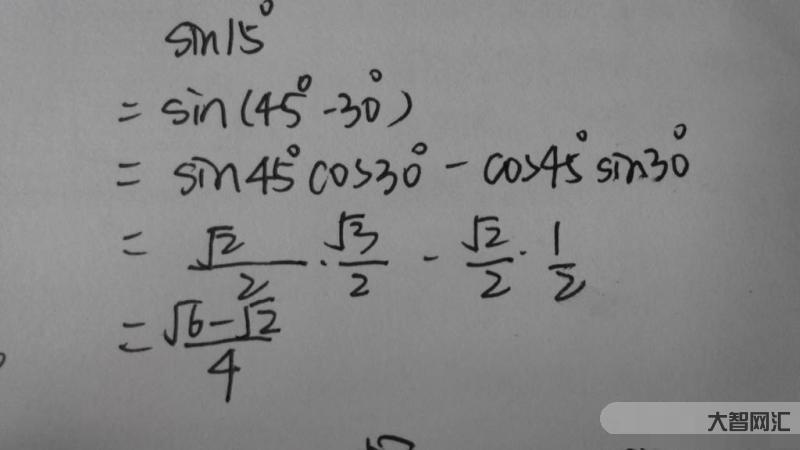 sin15°
= sin(45°-30°)
= sin45°cos30° - cos45°sin30°
= √2/2 · √3/2 - √2/2 · 1/2
= (√6-√2)/4
大智网汇